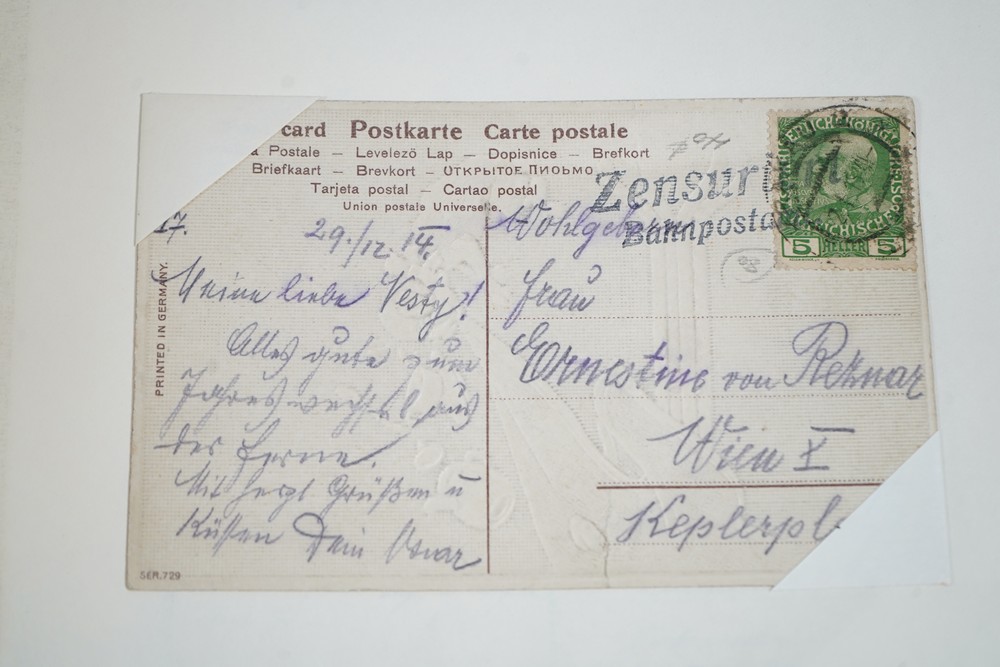 card Postkarte Carte postale
Postale – Levelező Lap – Dopisnice – Brefkort
Briefkaart – Brevkort – ОТКРЫТОЕ ПИСЬМО
Tarjeta postal – Cartao postal
Union postale Universelle.
PRINTED IN GERMANY.
29./12. 14.
Meine liebe Vesty!
Alles gute zum
Jahreswechsel aus
der Ferne.
Mit herzl Grüßen u
Küssen Dein Oscar
SER.729
Zensur
Bahnposta
5 HELLER 5
Wohlgeboren
Frau
Ernestine von
Wien X
Keplerpl